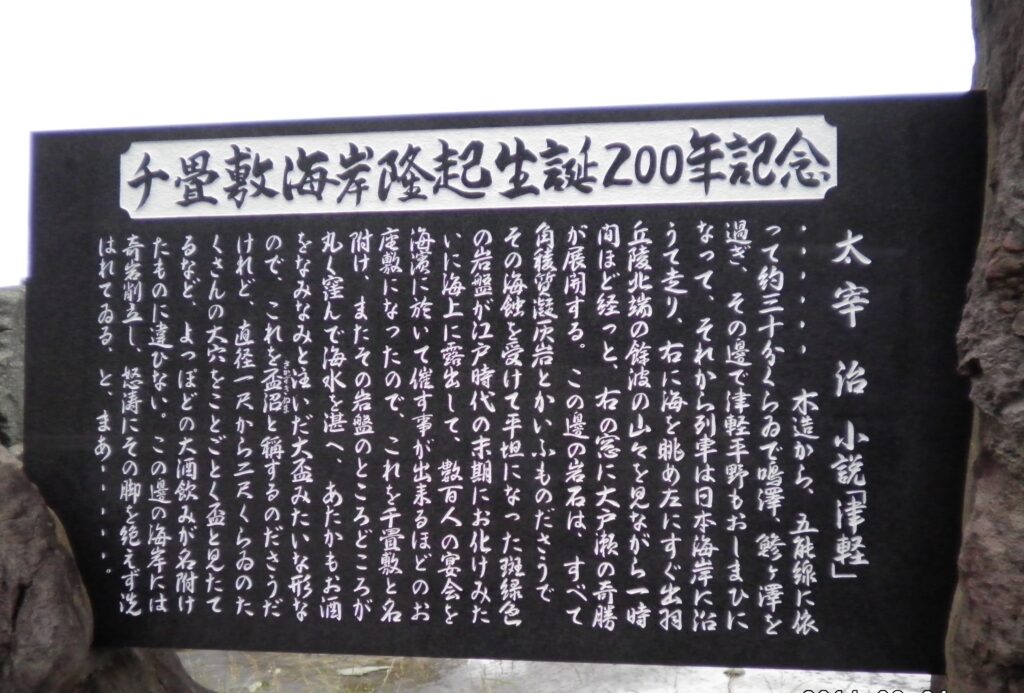 千畳敷海岸隆起生誕200年記念
太宰 治 小説「津軽」
・・・・・・木造から、五能線に依
って約三十分くらゐで鳴澤、鰺ヶ澤を
過ぎ、その邊で津軽平野もおしまひに
なって、それから列車は日本海岸に沿
うて走り、右に海を眺め左にすぐ出羽
丘陵北端の餘波の山々を見ながら一時
間ほど経つと、右の窓に大戸瀬の奇勝
が展開する。この邊の岩石は、すべて
角稜質凝灰岩とかいふものださうで
その海蝕を受けて平坦になった斑緑色
の岩盤が江戸時代の末期にお化けみた
いに海上に露出して、数百人の宴会を
海濱に於いて催す事が出来るほどのお
座敷になったので、これを千畳敷と名
附け、またその岩盤のところどころが
丸く窪んで海水を湛へ、あたかもお酒
をなみなみと注いだ大盃みたいな形な
ので、これを盃沼と稱するのださうだ
けれど、直径一尺から二尺くらゐのた
くさんの大穴をことごとく盃と見たて
るなど、よっぽどの大酒飲みが名附け
たものに違ひない。この邊の海岸には
奇岩削立し、怒涛にその脚を絶えず洗
はれてゐる、と、まあ・・・・・・